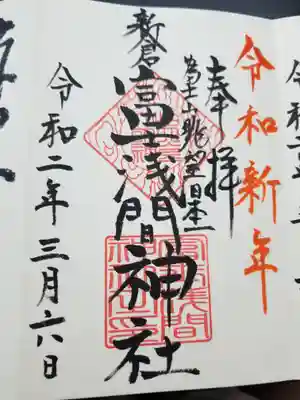 令和新年
奉拝
富士山眺望日本一
新倉
富士浅間神社
令和二年三月六日